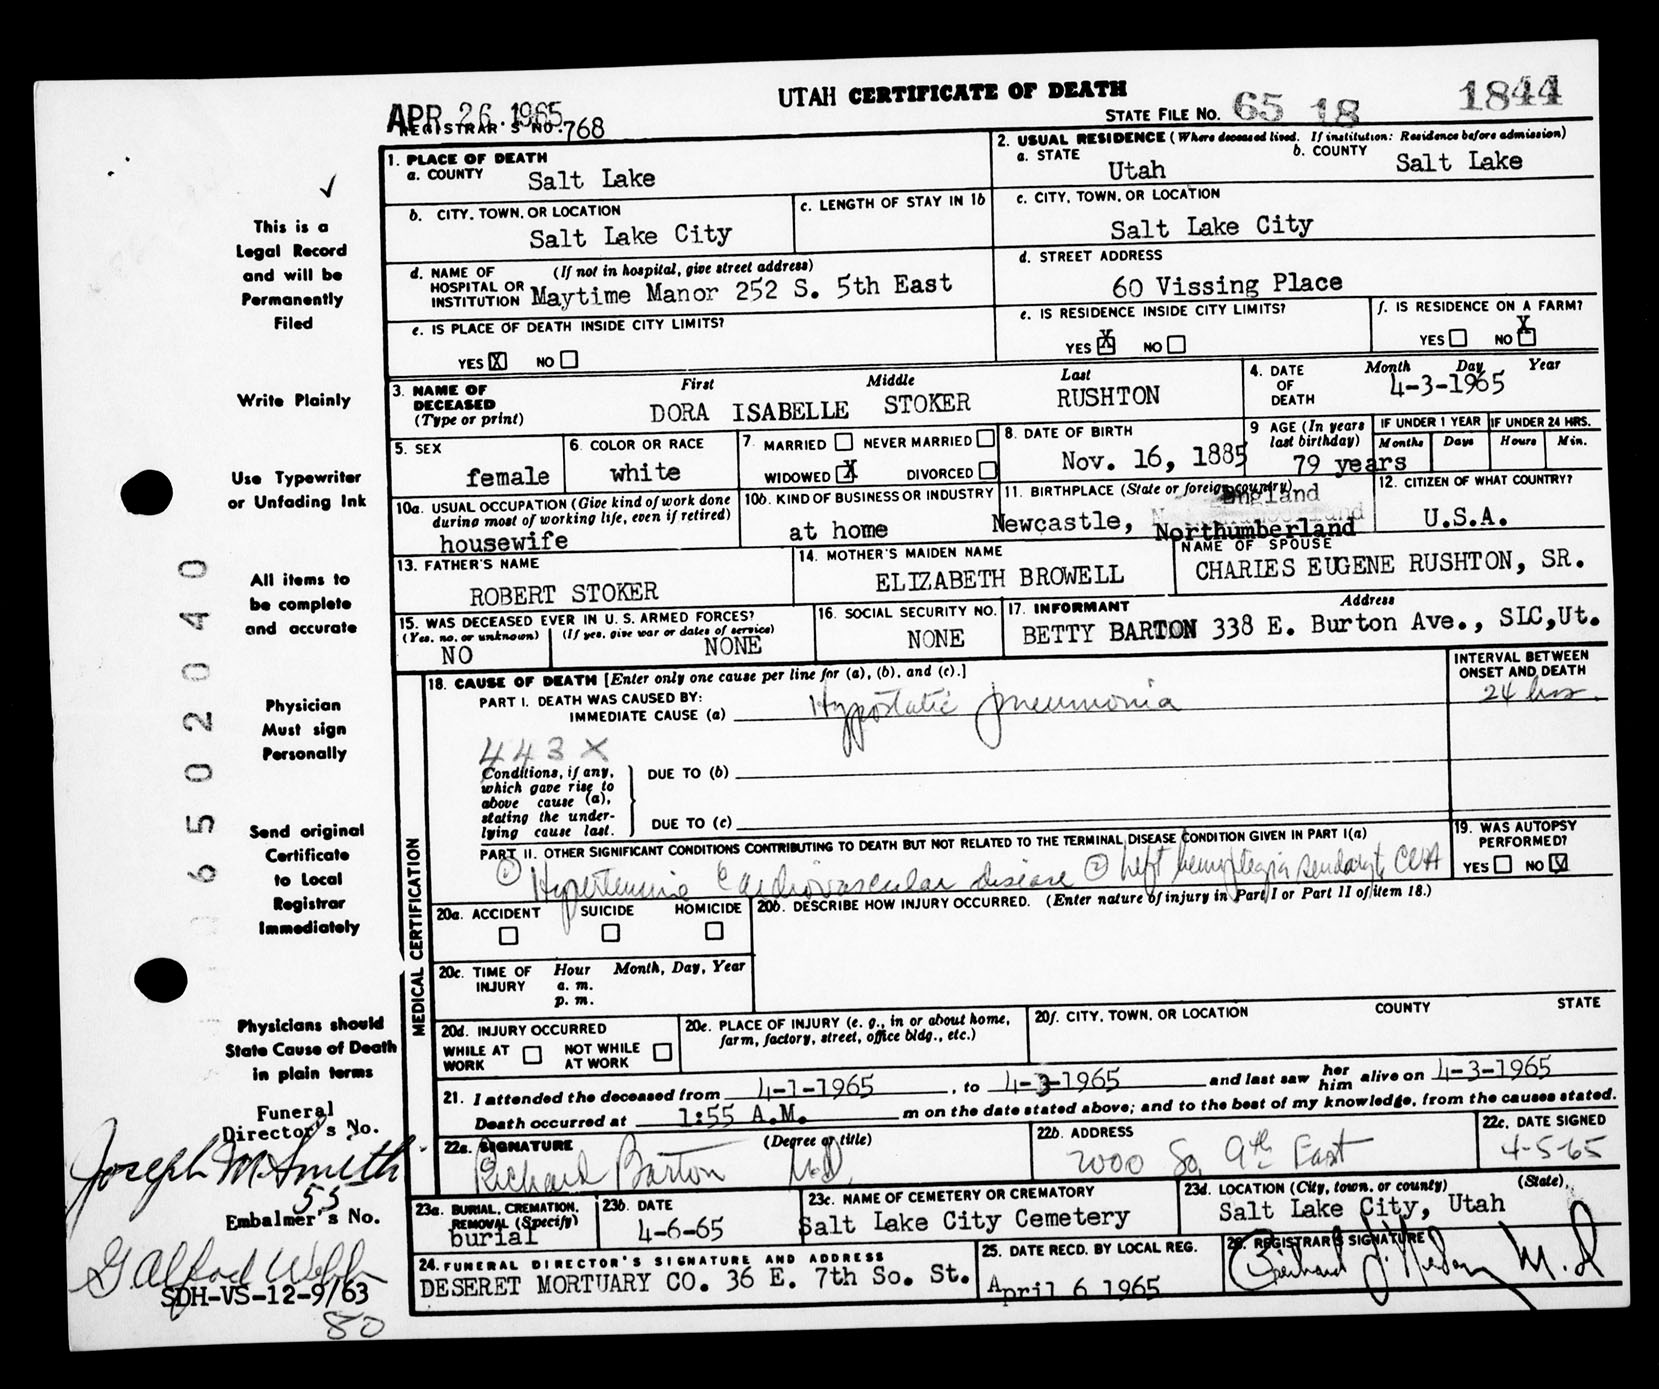 UTAH CERTIFICATE OF DEATH
APR 26 1965
REGISTRAR'S NO. 768
STATE FILE NO. 65 18 1844
1. PLACE OF DEATH
a. COUNTY Salt Lake
2. USUAL RESIDENCE (Where deceased lived. If institution: Residence before admission)
a. STATE Utah b. COUNTY Salt Lake
b. CITY, TOWN, OR LOCATION Salt Lake City
c. LENGTH OF STAY IN 1b
c. CITY, TOWN, OR LOCATION
Salt Lake City
d. NAME OF HOSPITAL OR INSTITUTION (If not in hospital, give street address)
Maytime Manor 252 S. 5th East
d. STREET ADDRESS
60 Vissing Place
e. IS PLACE OF DEATH INSIDE CITY LIMITS?
YES X NO
e. IS RESIDENCE INSIDE CITY LIMITS?
YES X NO
f. IS RESIDENCE ON A FARM?
YES NO X
3. NAME OF DECEASED (Type or print)
First Middle Last
DORA ISABELLE STOKER RUSHTON
4. DATE OF DEATH Month Day Year
4-3-1965
5. SEX
female
6. COLOR OR RACE
white
7. MARRIED NEVER MARRIED
WIDOWED X DIVORCED
8. DATE OF BIRTH
Nov. 16, 1885
9 AGE (In years last birthday)
79 years
IF UNDER 1 YEAR
Months Days
IF UNDER 24 HRS.
Hours Min.
10a. USUAL OCCUPATION (Give kind of work done during most of working life, even if retired)
housewife
10b. KIND OF BUSINESS OR INDUSTRY
at home
11. BIRTHPLACE (State or foreign country)
England
Newcastle, Northumberland
12. CITIZEN OF WHAT COUNTRY?
U.S.A.
13. FATHER'S NAME
ROBERT STOKER
14. MOTHER'S MAIDEN NAME
ELIZABETH BROWELL
NAME OF SPOUSE
CHARLES EUGENE RUSHTON, SR.
15. WAS DECEASED EVER IN U. S. ARMED FORCES?
(Yes, no, or unknown) (If yes, give war or dates of service)
NO NONE
16. SOCIAL SECURITY NO.
NONE
17. INFORMANT Address
BETTY BARTON 338 E. Burton Ave., SLC,Ut.
MEDICAL CERTIFICATION
18. CAUSE OF DEATH [Enter only one cause per line for (a), (b), and (c).]
INTERVAL BETWEEN ONSET AND DEATH
PART I. DEATH WAS CAUSED BY:
IMMEDIATE CAUSE (a) Hypostatic pneumonia 24 hrs.
443X
Conditions, if any, which gave rise to above cause (a), stating the underlying cause last.
DUE TO (b)
DUE TO (c)
PART II. OTHER SIGNIFICANT CONDITIONS CONTRIBUTING TO DEATH BUT NOT RELATED TO THE TERMINAL DISEASE CONDITION GIVEN IN PART I(a)
① Hypertensive Cardiovascular disease ② Left hemiplegia secondary to CVA
19. WAS AUTOPSY PERFORMED?
YES NO
20a. ACCIDENT SUICIDE HOMICIDE
20b. DESCRIBE HOW INJURY OCCURRED. (Enter nature of injury in Part I or Part II of item 18.)
20c. TIME OF INJURY Hour Month, Day, Year
a. m.
p. m.
20d. INJURY OCCURRED
WHILE AT WORK NOT WHILE AT WORK
20e. PLACE OF INJURY (e. g., in or about home, farm, factory, street, office bldg., etc.)
20f. CITY, TOWN, OR LOCATION COUNTY STATE
21. I attended the deceased from 4-1-1965, to 4-3-1965 and last saw her him alive on 4-3-1965
Death occurred at 1:55 A.M. m on the date stated above; and to the best of my knowledge, from the causes stated.
22a. SIGNATURE (Degree or title)
Richard Barton MD
22b. ADDRESS
2000 So. 9th East
22c. DATE SIGNED
4-5-65
23a. BURIAL, CREMATION, REMOVAL (Specify)
burial
23b. DATE
4-6-65
23c. NAME OF CEMETERY OR CREMATORY
Salt Lake City Cemetery
23d. LOCATION (City, town, or county) (State)
Salt Lake City, Utah
24. FUNERAL DIRECTOR'S SIGNATURE AND ADDRESS
DESERET MORTUARY CO. 36 E. 7th So. St.
25. DATE RECD. BY LOCAL REG.
April 6 1965
26. REGISTRAR'S SIGNATURE
M.D
This is a
Legal Record
and will be
Permanently
Filed
Write Plainly
Use Typewriter
or Unfading Ink
All items to
be complete
and accurate
Physician
Must sign
Personally
Send original
Certificate
to Local
Registrar
Immediately
Physicians should
State Cause of Death
in plain terms
Funeral
Director's No.
Joseph M. Smith
55
Embalmer's No.
SDH-VS-12-9/63
80
6502040